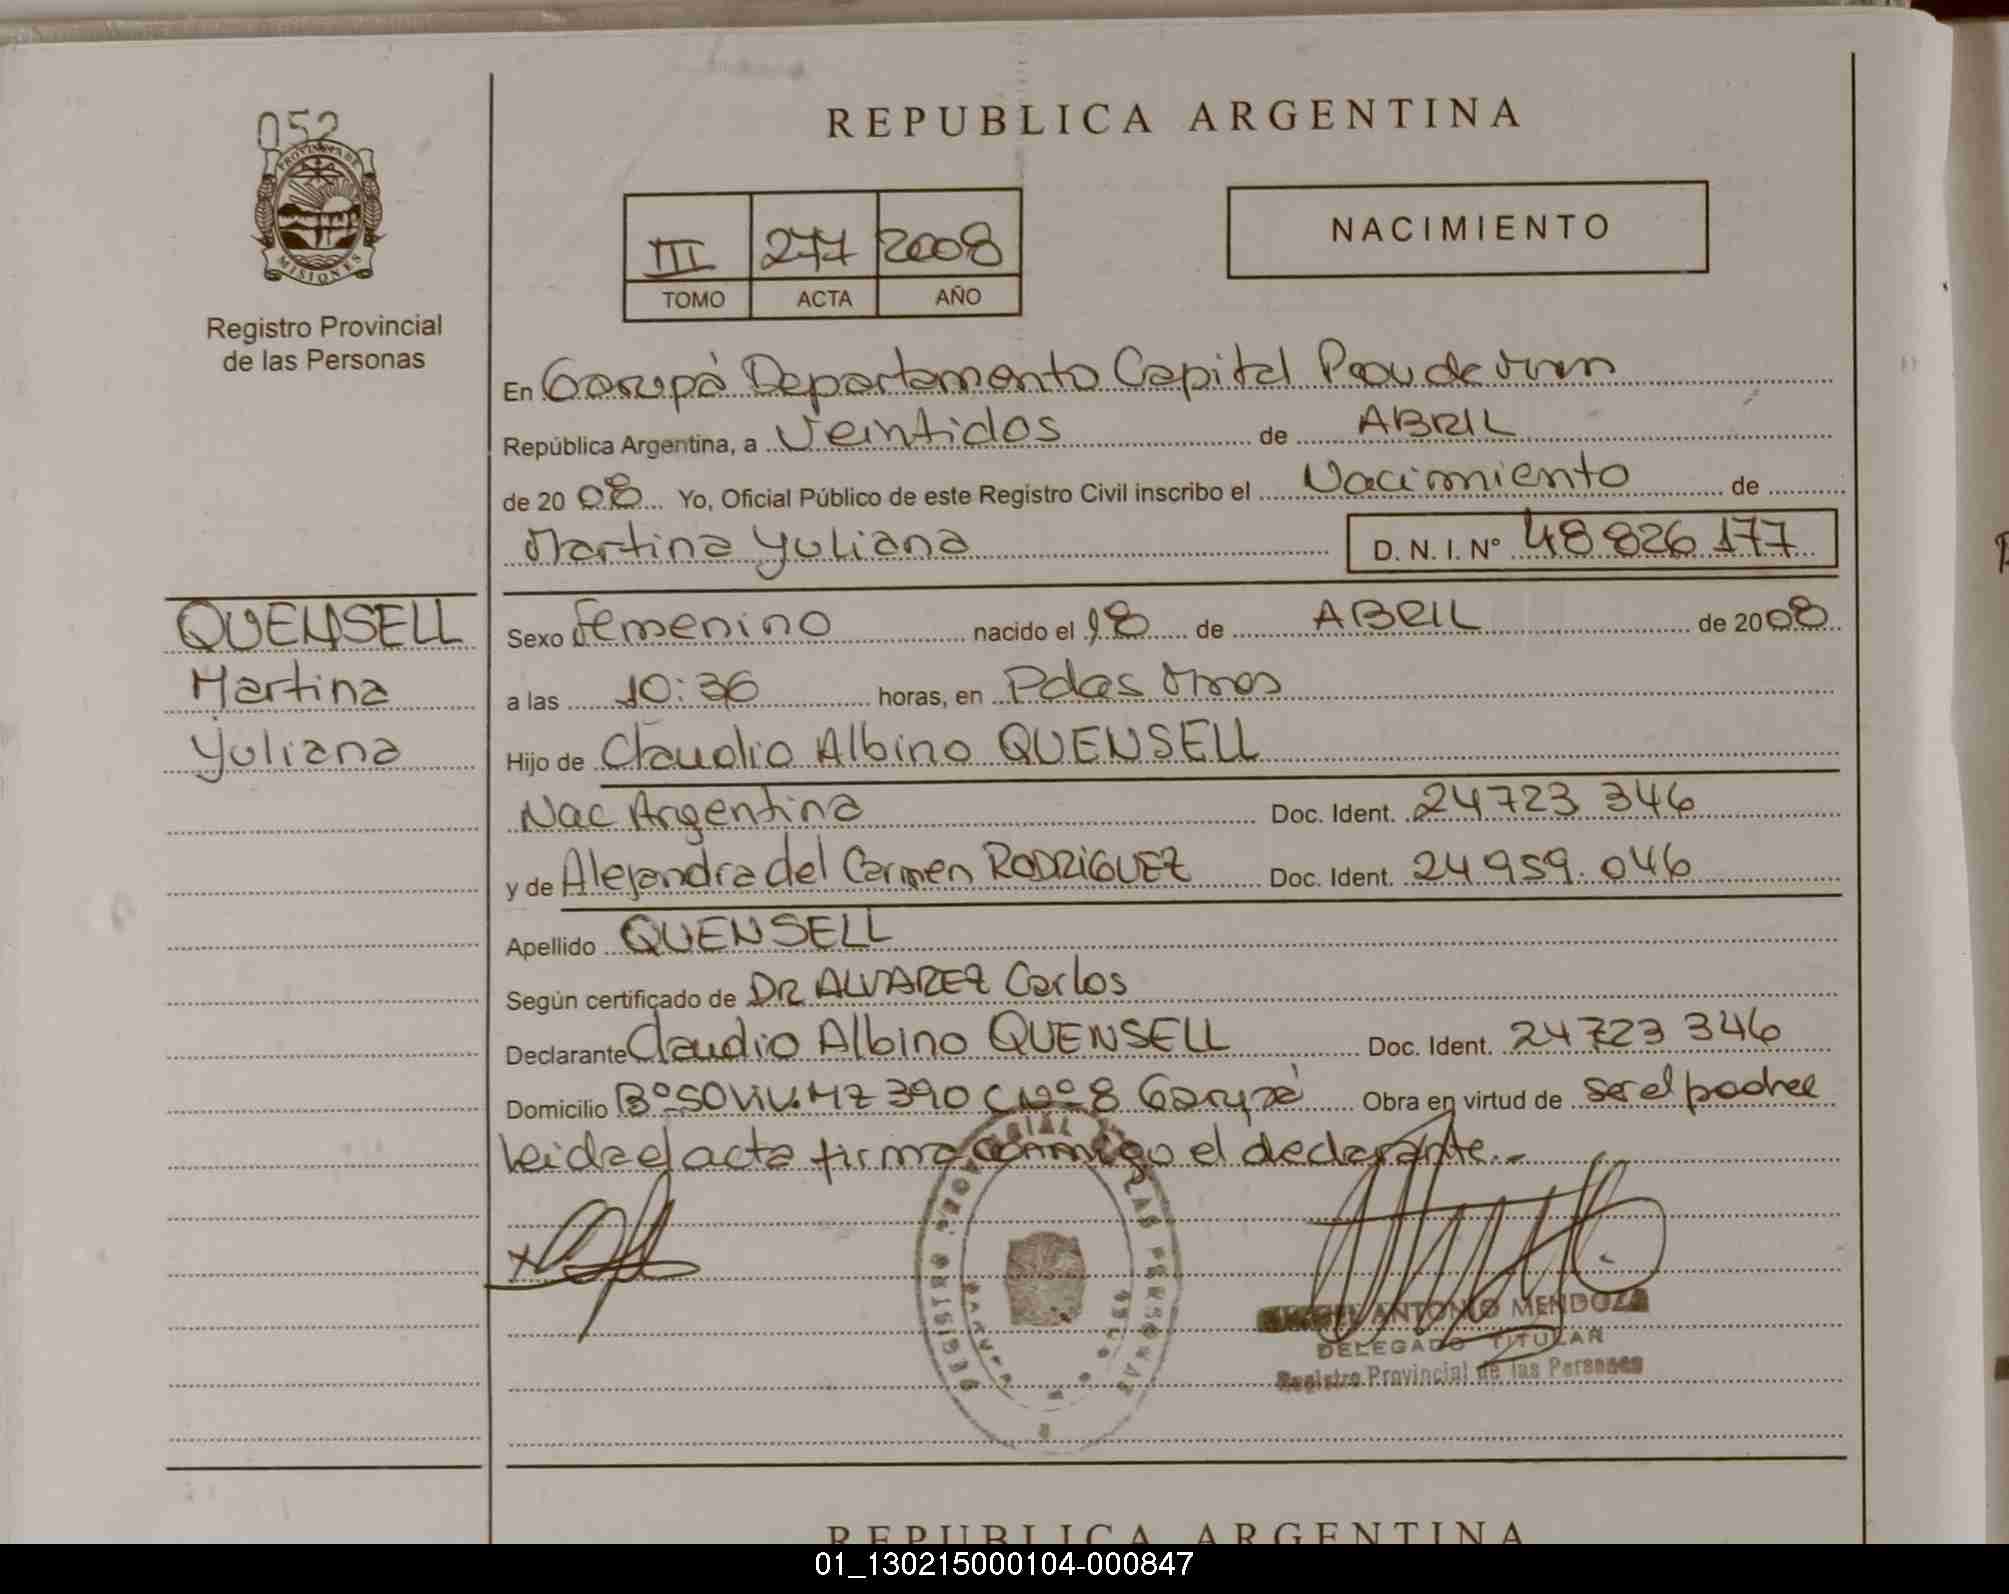 052
PROVINCIA DE
MISIONES
Registro Provincial
de las Personas
REPUBLICA ARGENTINA
III 277 2008
TOMO ACTA AÑO
NACIMIENTO
En Garupá Departamento Capital Prov de Mnes
República Argentina, a Veintidos de ABRIL
de 20 08 Yo, Oficial Público de este Registro Civil inscribo el Nacimiento de
Martina Yuliana D. N. I. Nº 48 826 177
QUENSELL
Martina
Yuliana
Sexo Femenino nacido el 18 de ABRIL de 2008
a las 10:36 horas, en Pdas Mnes
Hijo de Claudio Albino QUENSELL
Nac Argentina Doc. Ident. 24723 346
y de Alejandra del Carmen RODRIGUEZ Doc. Ident. 24 959.046
Apellido QUENSELL
Según certificado de DR ALVAREZ Carlos
Declarante Claudio Albino QUENSELL Doc. Ident. 24 723 346
Domicilio Bº SO Viv. MZ 390 C Nº 8 Garupá Obra en virtud de ser el padre
Leida el acta firma conmigo el declarante.-
ANTONIO MENDOZA
DELEGADO TITULAR
Registro Provincial de las Personas
REPUBLICA ARGENTINA
01_130215000104-000847